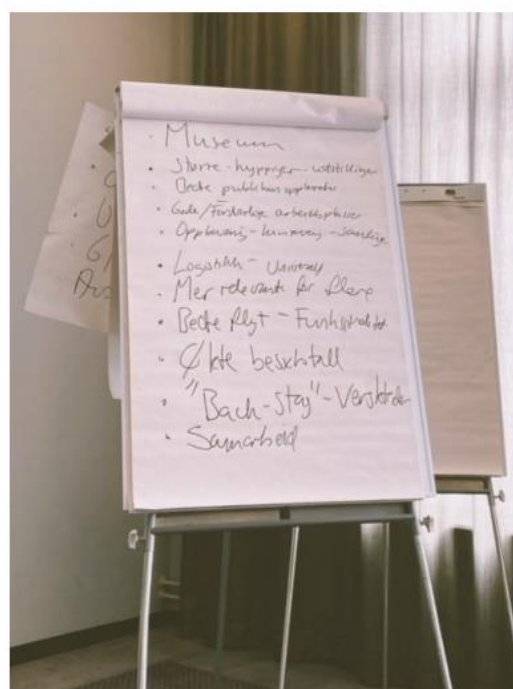 • Museum
• Større - hyppiger - utstillinger
• Bedre publikumsopplevelser
• Gode/Forsvarlige arbeidsplasser
• Oppbevaring - - samlinger
• Logistikk - Universell
• Mer relevant for flere
• Bedre flyt - Funksjonalitet
• Økte besøkstall
• "Back-stay" - Verksteder
• Samarbeid